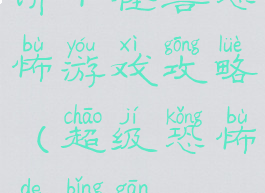 bù yóu xì gōng lüè
怖游戏攻略
chāo jí kǒng bù
(超级恐怖
de bǐng gān